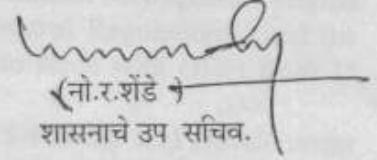 (नो.र.शेंडे )
शासनाचे उप सचिव.